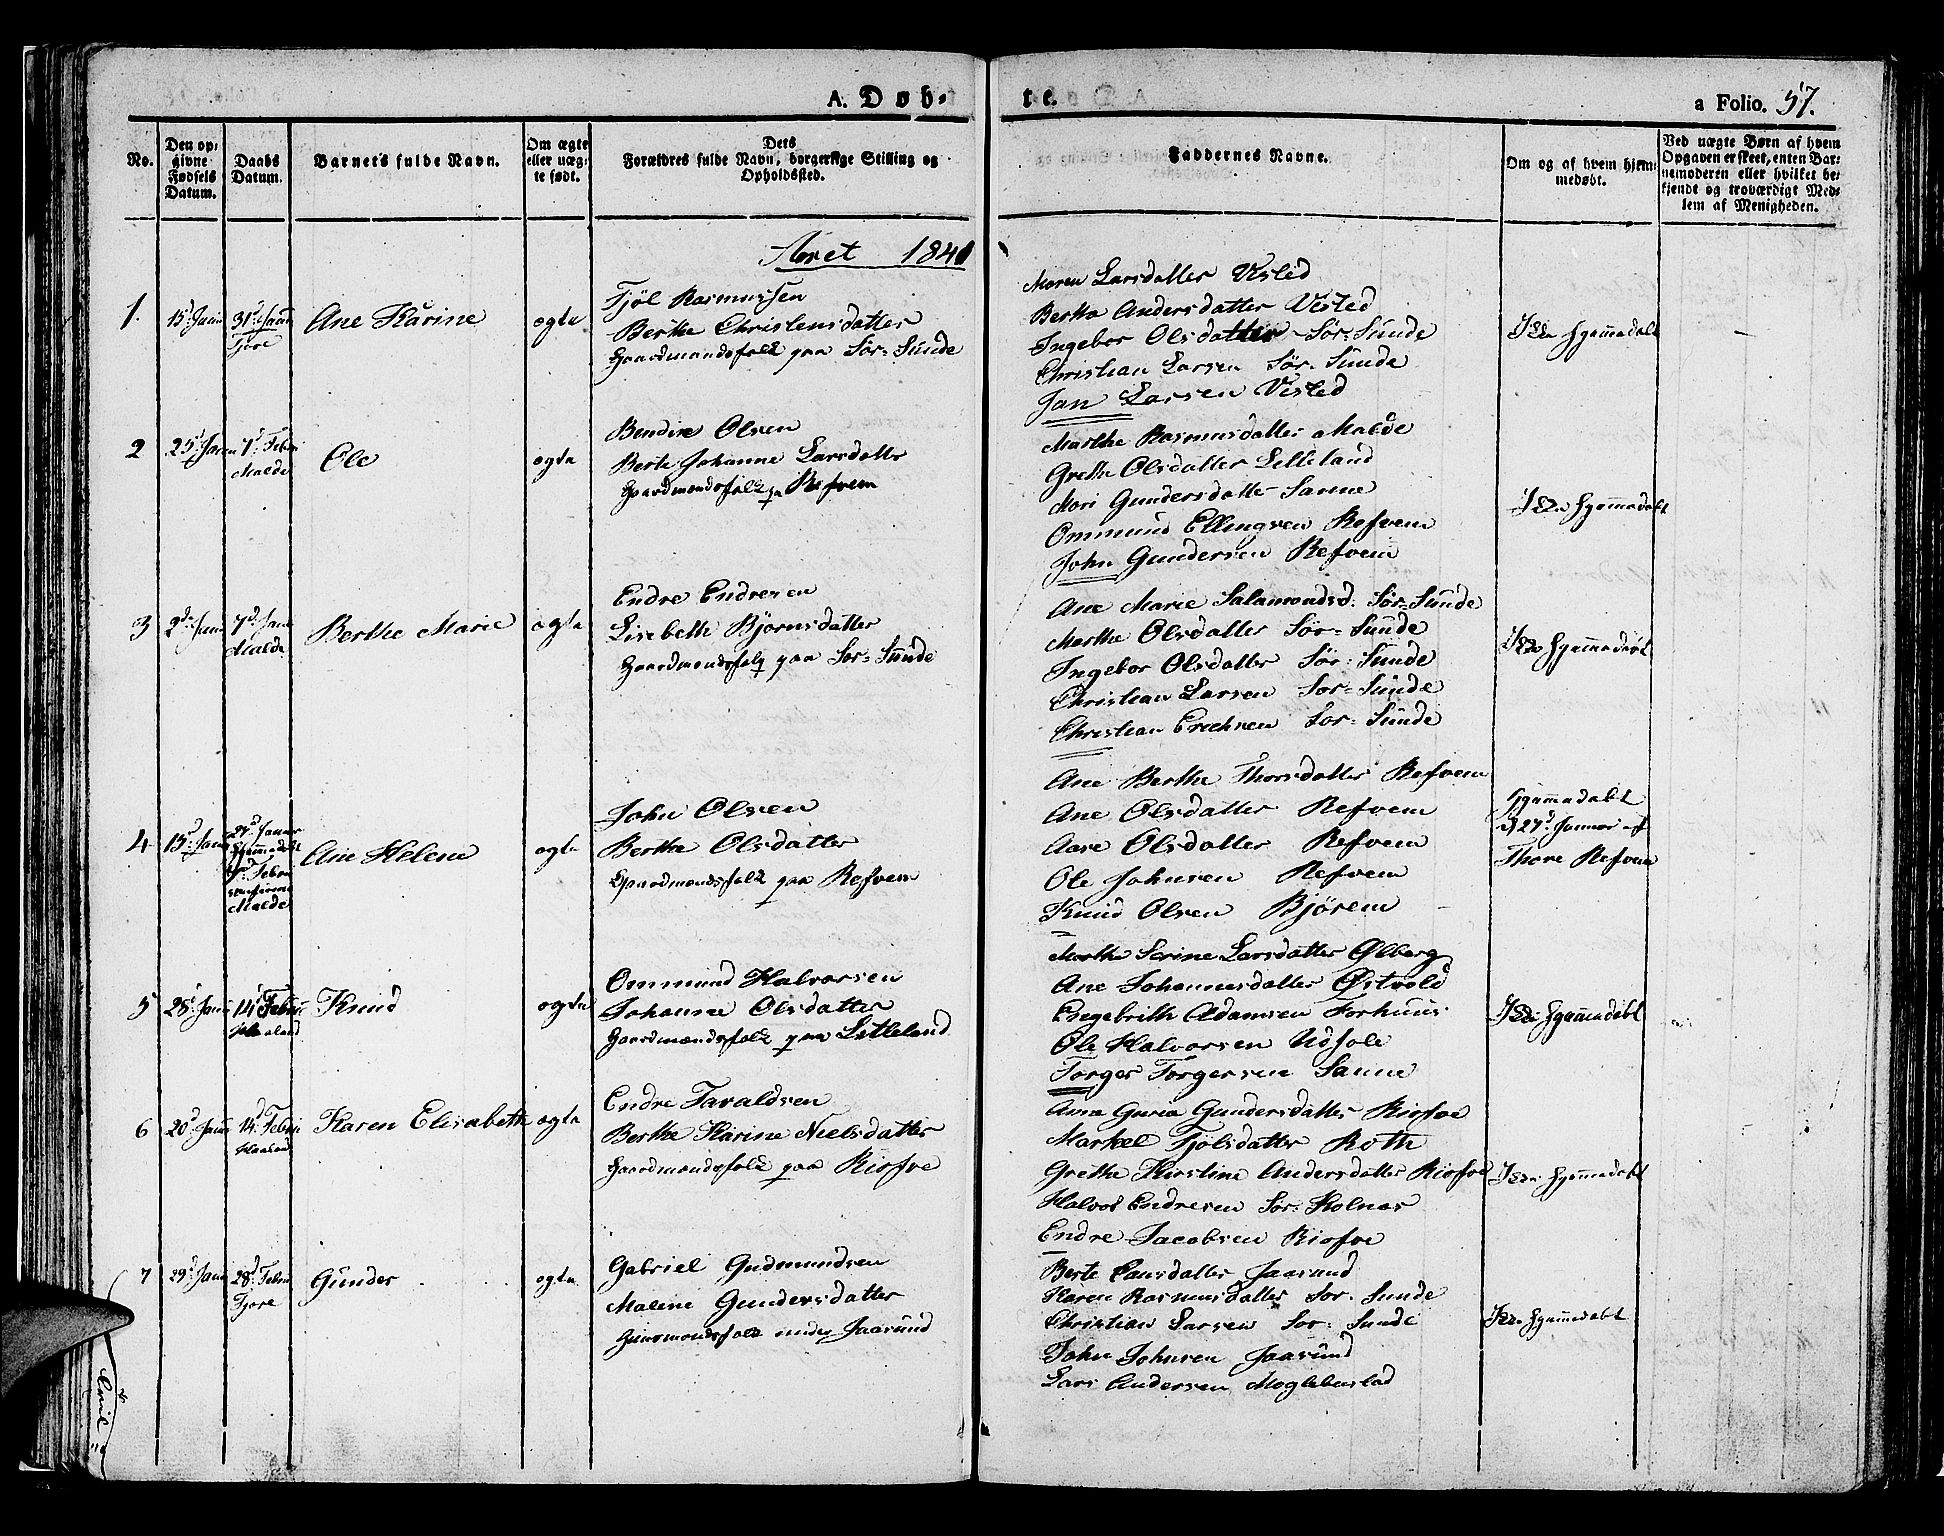 A. Døb-
te.
a Folio. 57.
No.
Den op-
givne
Fødsels
Datum.
Daabs
Datum.
Barnets fulde Navn.
Om ægte
eller uæg-
te født.
Dets
Forældres fulde Navn, borgerlige Stilling og
Opholdsted.
Faddernes Navne.
Om og af hvem hjem-
medøbt.
Ved uægte Børn af hvem
Opgaven er skeet, enten Bar-
nemoderen eller hvilket be-
kjendt og troværdigt Med-
lem af Menigheden.
Aaret 1841
1.
15d Janu
31d Janu
Tjore
Ane Karine
ægte
Tjöl Rasmussen
Berthe Christensdatter
Gaardmandsfolk paa Sör-Sunde
Maren Larsdatter Visted
Bertha Andersdatter Visted
Ingebor Olsdatter Sör-Sunde
Christian Larsen Sör-Sunde
Jan Larsen Visted
Ikke hjemmedøbt
2
25d Janu
7d Febru
Malde
Ole
ægte
Bendix Olsen
Berte Johanne Larsdatter
Gaardmandsfolk paa Refvem
Marthe Rasmusdatter Malde
Grethe Olsdatter Litleland
Mari Gundersdatter Sanne
Ommund Ellingsen Refvem
John Gundersen Refvem
Ikke hjemmedøbt
3
2d Janu
7d Janu
Malde
Berthe Marie
ægte
Endre Endresen
Lisebeth Bjørnsdatter
Gaardmandsfolk paa Sör-Sunde
Ane Marie Salamonsd: Sör-Sunde
Marthe Olsdatter Sör-Sunde
Ingebor Olsdatter Sör-Sunde
Christian Larsen Sor-Sunde
Christian Erichsen Sor-Sunde
Ikke hjemmedøbt
4
15d Janu
27d Januar
hjemmedøbt
Febru
Malde
Ane Helene
ægte
John Olsen
Berthe Olsdatter
Gaardmandsfolk paa Refvem
Ane Berthe Thorsdatter Refvem
Ane Olsdatter Refvem
Aase Olsdatter Refvem
Ole Johnsen Refvem
Knud Olsen Bjørem
Hjemmedøbt
d 27d Januar af
Thore Refvem
5
28d Janu
14d Febru
Haaland
Knud
ægte
Ommund Halvorsen
Johanne Olsdatter
Gaardmandsfolk paa Litleland
Marthe Serine Larsdatter Ølberg
Ane Johannesdatter Østvold
Engebrith Adamsen Forhuus
Ole Halvorsen Udsole
Torger Torgersen Sanne
Ikke hjemmedøbt
6
20d Janu
14d Febru
Haaland
Karen Elisabeth
ægte
Endre Taraldsen
Berthe Karine Nielsdatter
Gaardmandsfolk paa Risfoe
Ana Guria Gundersdatter Risfoe
Markel Tjölsdatter Roth
Grethe Kirstine Andersdatter Risfoe
Halvor Endresen Sör-Kolnes
Endre Jacobsen Risfoe
Ikke hjemmedøbt
7
29d Janu
28d Febru
Tjore
Gunder
ægte
Gabriel Gudmundsen
Malene Gundersdatter
Huusmandsfolk under Jaasund
Berte Larsdatter Jaasund
Karen Rasmusdatter Sor-Sunde
Christian Larsen Sor-Sunde
John Johnsen Jaasund
Lars Andersen Myglebustad
Ikke hjemmedøbt